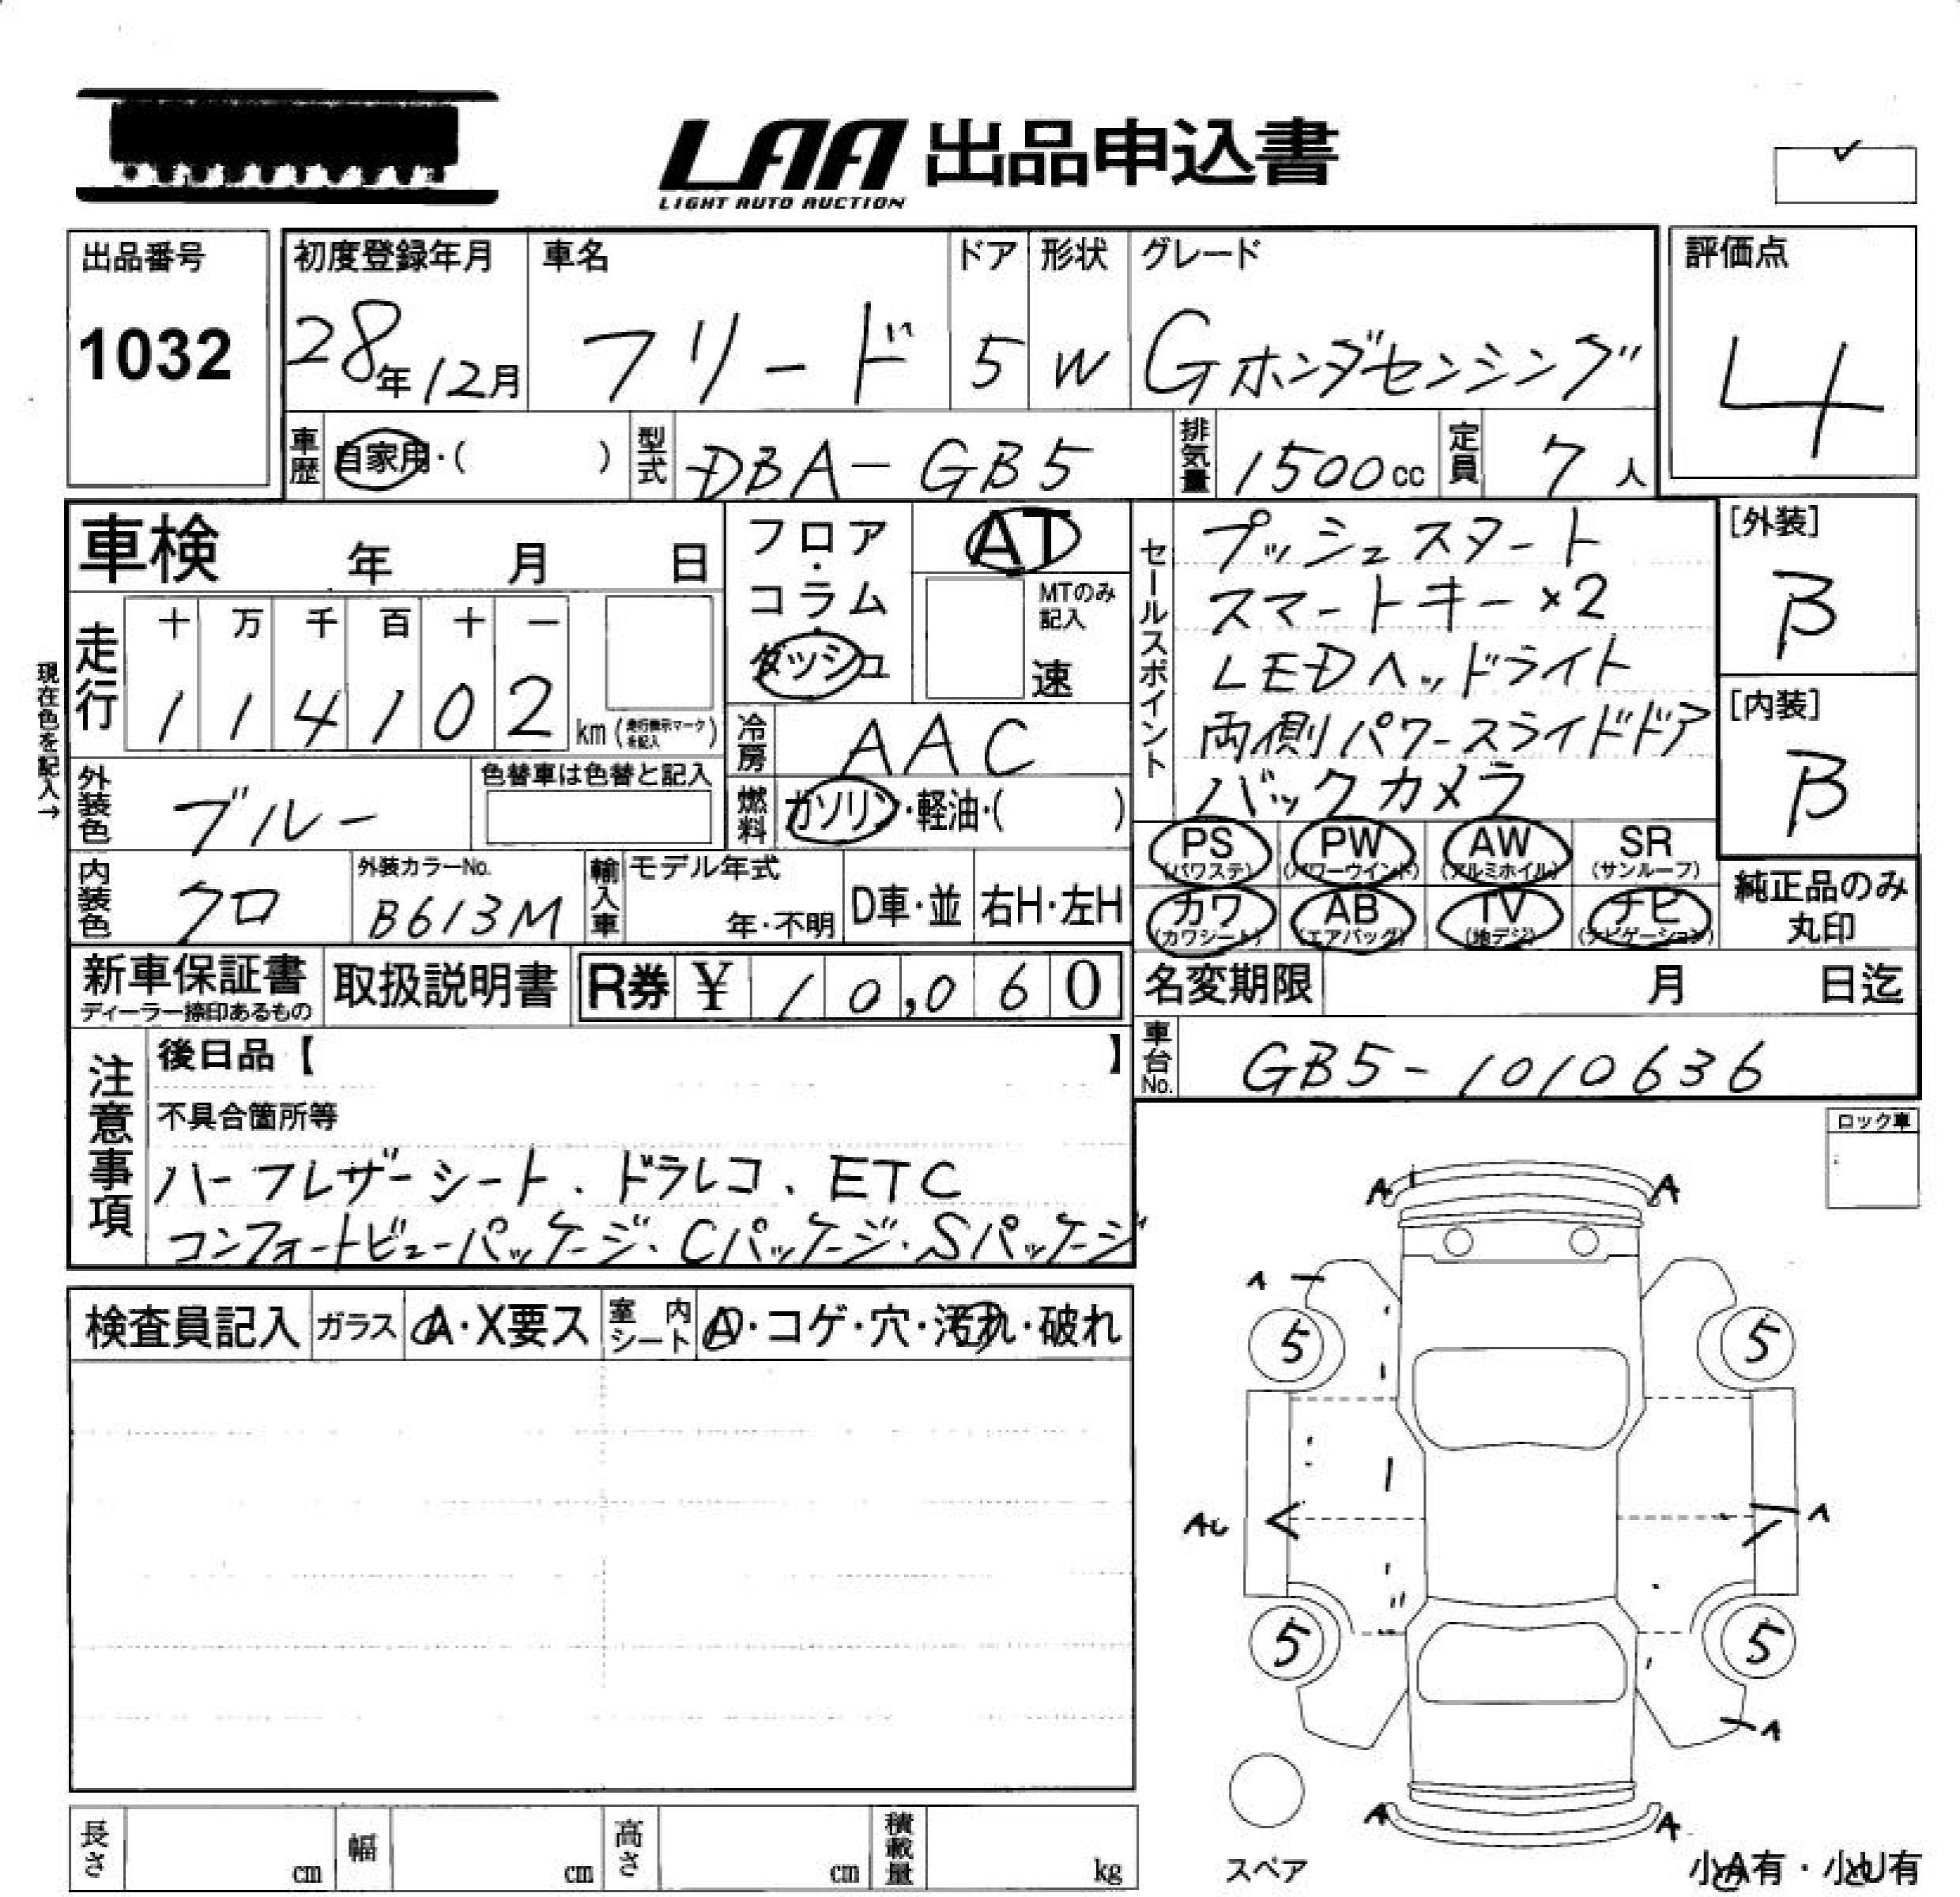 LAA 出品申込書
LIGHT AUTO AUCTION
出品番号
1032
初度登録年月
28年12月
車名
フリード
ドア
5
形状
W
グレード
Gホンダセンシング
評価点
4
車歴 自家用・( )
型式 DBA-GB5
排気量 1500cc
定員 7人
車検 年 月 日
走行 十 万 千 百 十 一
1 1 4 1 0 2 km (走行表示マークを記入)
現在色を記入→
フロア・コラム・ダッシュ
AT
MTのみ記入
速
冷房 AAC
燃料 ガソリン・軽油・( )
セールスポイント
プッシュスタート
スマートキー×2
LEDヘッドライト
両側パワースライドドア
バックカメラ
[外装]
B
[内装]
B
外装色 ブルー
色替車は色替と記入
内装色 クロ
外装カラーNo.
B613M
輸入車 モデル年式
年・不明
D車・並 右H・左H
PS (パワステ)
PW (パワーウインド)
AW (アルミホイル)
SR (サンルーフ)
カワ (カワシート)
AB (エアバッグ)
TV (地デジ)
ナビ (ナビゲーション)
純正品のみ
丸印
新車保証書
ディーラー捺印あるもの
取扱説明書
R券 ¥ 10,060
名変期限 月 日迄
車台No. GB5-1010636
注意事項
後日品【 】
不具合箇所等
ハーフレザーシート、ドラレコ、ETC
コンフォートビューパッケージ・Cパッケージ・Sパッケージ
ロック車
検査員記入 ガラス A・X要ス 室内シート A・コゲ・穴・汚れ・破れ
A A
5 5
AU
5 5
A A
スペア
小A有・小U有
長さ cm 幅 cm 高さ cm 積載量 kg